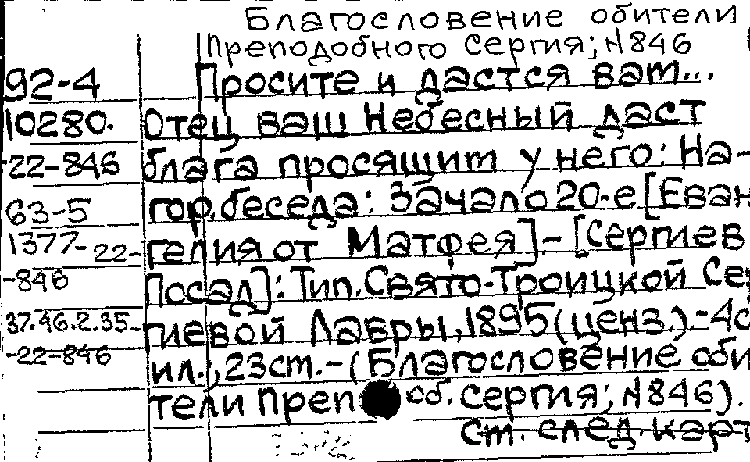 Благословение обители
Преподобного Сергия; №846
92-4 Просите и дастся вам...
10280. Отец ваш Небесный даст
22-846 блага просящим у него: На-
63-5 гор. беседа: Зачало 20-е [Еван
1377-22- гелия от Матфея] - [Сергиев
-846 Посад]: Тип. Свято-Троицкой Сер
37.46.2.35- гиевой Лавры, 1895 (ценз.) - 4с
-22-846 ил.; 23см. - (Благословение оби
тели Преп об. Сергия; №846).
См. след. карт